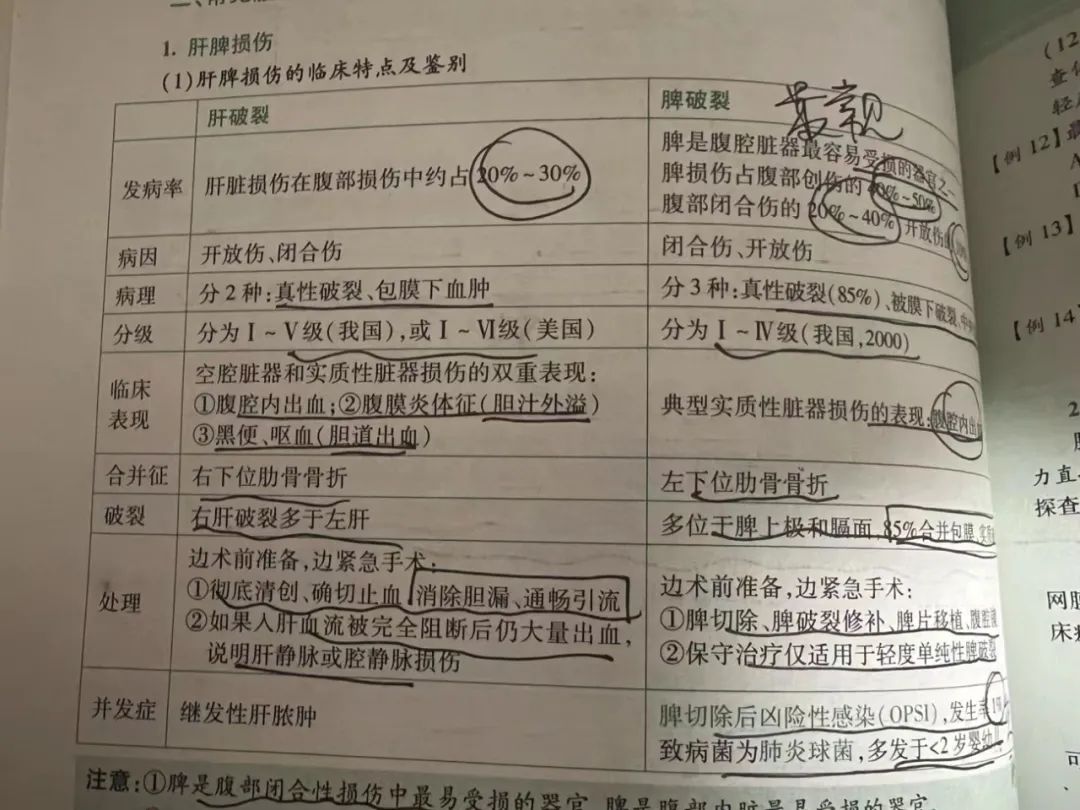 1. 肝脾损伤
(1)肝脾损伤的临床特点及鉴别
肝破裂
脾破裂
常见
发病率
肝脏损伤在腹部损伤中约占20%~30%
脾是腹腔脏器最容易受损的器官之一
脾损伤占腹部创伤的40%~50%
腹部闭合伤的20%~40%,开放伤的
病因
开放伤、闭合伤
闭合伤、开放伤
病理
分2种:真性破裂、包膜下血肿
分3种:真性破裂(85%)、被膜下破裂、中
分级
分为Ⅰ~Ⅴ级(我国),或Ⅰ~Ⅵ级(美国)
分为Ⅰ~Ⅳ级(我国,2000)
临床
表现
空腔脏器和实质性脏器损伤的双重表现:
①腹腔内出血;②腹膜炎体征(胆汁外溢)
③黑便、呕血(胆道出血)
典型实质性脏器损伤的表现:腹腔内出
合并征
右下位肋骨骨折
左下位肋骨骨折
破裂
右肝破裂多于左肝
多位于脾上极和膈面,85%合并包膜、实
处理
边术前准备,边紧急手术:
①彻底清创、确切止血、消除胆漏、通畅引流
②如果入肝血流被完全阻断后仍大量出血,
说明肝静脉或腔静脉损伤
边术前准备,边紧急手术:
①脾切除、脾破裂修补、脾片移植、腹腔
②保守治疗仅适用于轻度单纯性脾破裂
并发症
继发性肝脓肿
脾切除后凶险性感染(OPSI),发生率1%
致病菌为肺炎球菌,多发于<2岁婴幼
注意:①脾是腹部闭合性损伤中最易受损的器官,脾是腹部内脏最易受损的器官
(12
查体
轻
【例12】最
A
【例13】
【例14
2
力直
探查
网膜
床
可